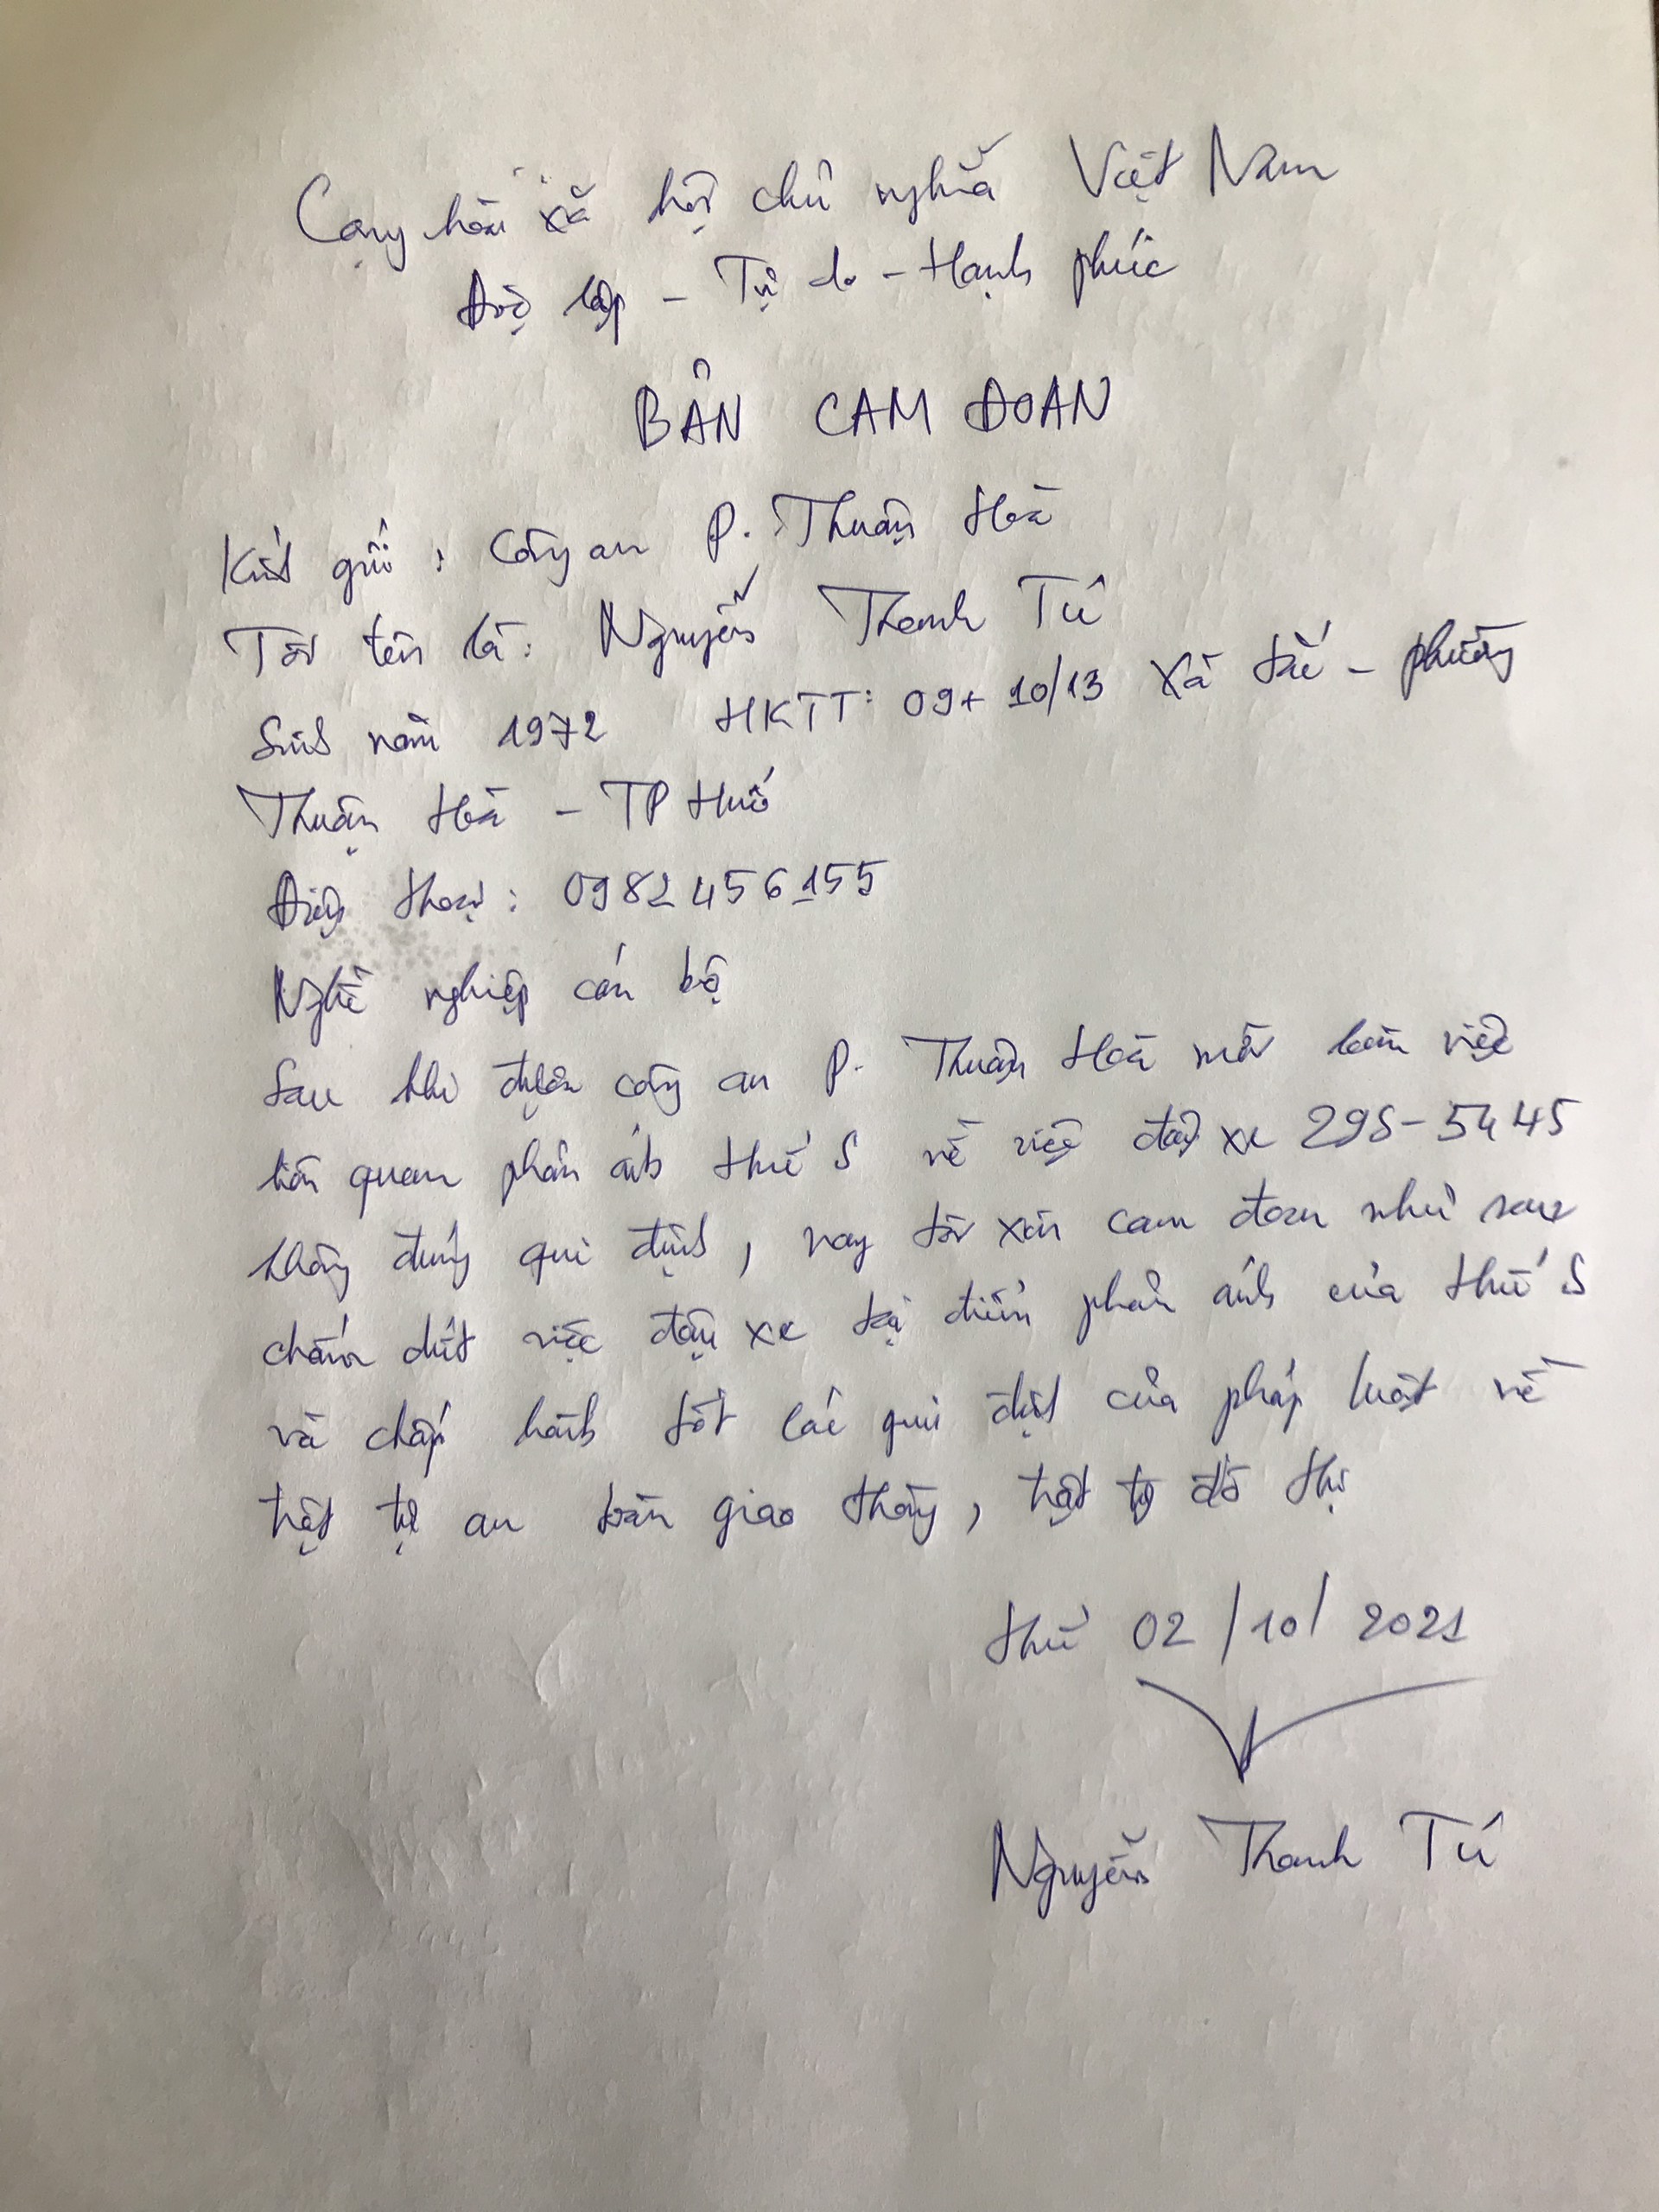 Cộng hòa xã hội chủ nghĩa Việt Nam
Độc lập - Tự do - Hạnh phúc
BẢN CAM ĐOAN
Kính gửi : Công an P. Thuận Hòa
Tôi tên là : Nguyễn Thanh Tú
Sinh năm 1972 HKTT: 09+ 10/13 Xã tắc - phường
Thuận Hòa - TP Huế
Điện thoại : 0982456155
Nghề nghiệp cán bộ
Sau khi được công an P. Thuận Hòa mời làm việc
liên quan phản ánh Huế S về việc đậu xe 29S-5445
không đúng qui định, nay tôi xin cam đoan như sau
chấm dứt việc đậu xe tại điểm phản ánh của Huế S
và chấp hành tốt các qui định của pháp luật về
trật tự an toàn giao thông, trật tự đô thị
Huế 02/10/2021
Nguyễn Thanh Tú